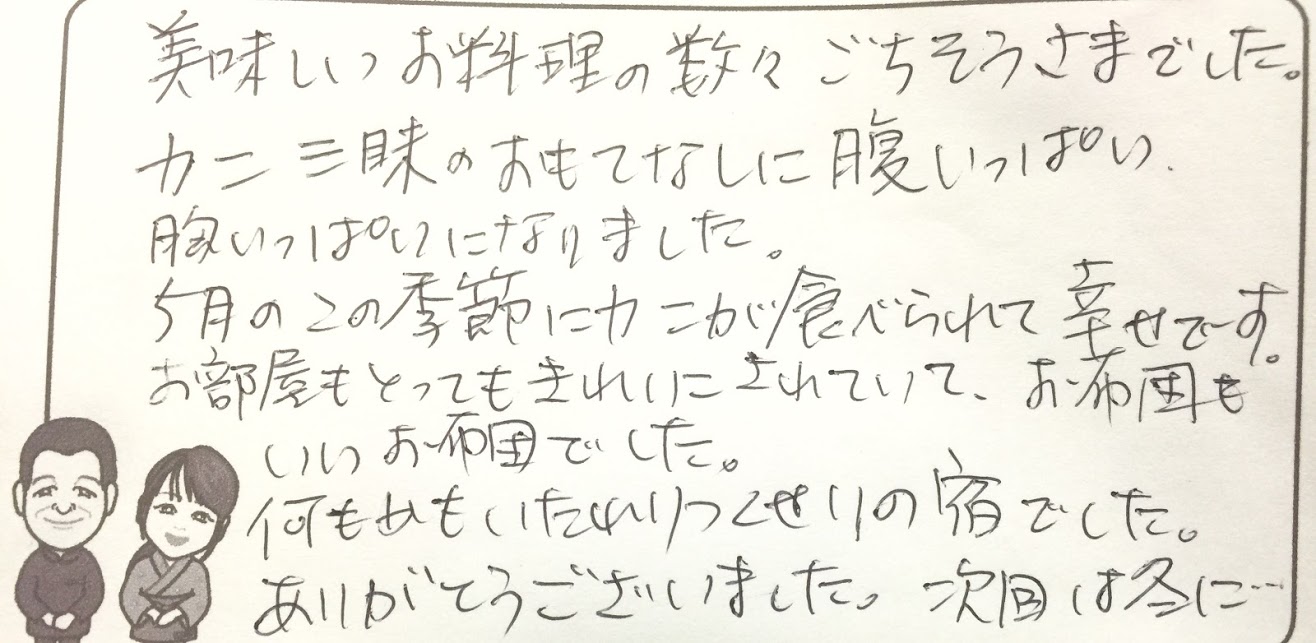 美味しいお料理の数々ごちそうさまでした。
カニ三昧のおもてなしに腹いっぱい、
胸いっぱいになりました。
5月のこの季節にカニが食べられて幸せです。
お部屋もとってもきれいにされていて、お布団も
いいお布団でした。
何もかもいたれりつくせりの宿でした。
ありがとうございました。次回は冬に…